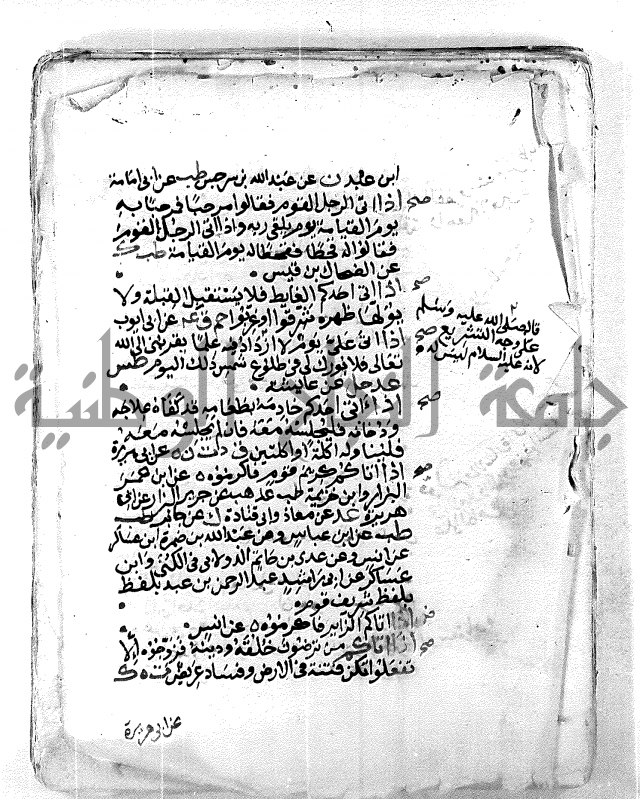 ابن عبد ن عن عبدالله بن سرجس طب عن ابي امامة
صح اذا اتى الرجل القوم فقالوا مرحبا فمرحبا به
يوم القيامة يوم يلقى ربه واذا اتى الرجل القوم
فقالوا له قحطا فقحطا له يوم القيامة طب ك
عن الضحاك بن قيس
صح اذا اتى احدكم الغايط فلا يستقبل القبلة ولا
يولها ظهره شرقوا او غربوا حم ق عه عن ابي ايوب
صح اذا اتى علي يوم لا ازداد فيه علما يقربني الى الله
تعالى فلا بورك لي في طلوع شمس ذلك اليوم طس
عد حل عن عايشه
صح اذا اتى احدكم خادمه بطعامه قد كفاه علاجه
ودخانه فليجلسه معه فان لم يجلسه معه
فليناوله اكلة او اكلتين ق د ت ه عن ابي هريرة
صح اذا اتاكم كريم قوم فاكرموه ه عن ابن عمر
البزار وابن خزيمة طب عد هب عن جرير البزار عن ابي
هريرة عد عن معاذ وابي قتادة ك عن جابر
طب عن ابن عباس وعن عبد الله بن ضمرة ابن عساكر
عن انس وعن عدي بن حاتم الدولابي في الكنى وابن
عساكر عن ابي راشد عبد الرحمن بن عبد بلفظ
بلفظ شريف قوم
ض اذا اتاكم الزاير فاكرموه ه عن انس
صح اذا اتاكم من ترضون خلقه ودينه فزوجوه الا
تفعلوا تكن فتنة في الارض وفساد عريض ت ه ك
عن ابي هريرة
قال صلى الله عليه وسلم
على وجه التشريع
لانه عليه السلام ليس له
جامعة النجاح الوطنية